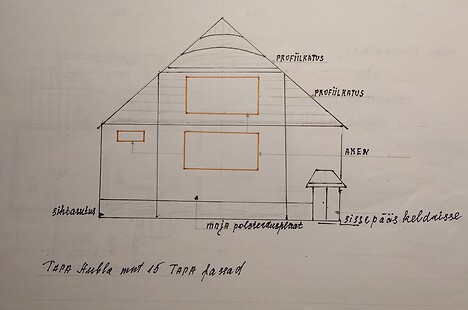 PROFIILKATUS
PROFIILKATUS
AKEN
sihtasutus
maja polsterdusplaat
sissepääs keldrisse
TAPA Hubla mnt 15 TAPA fassad